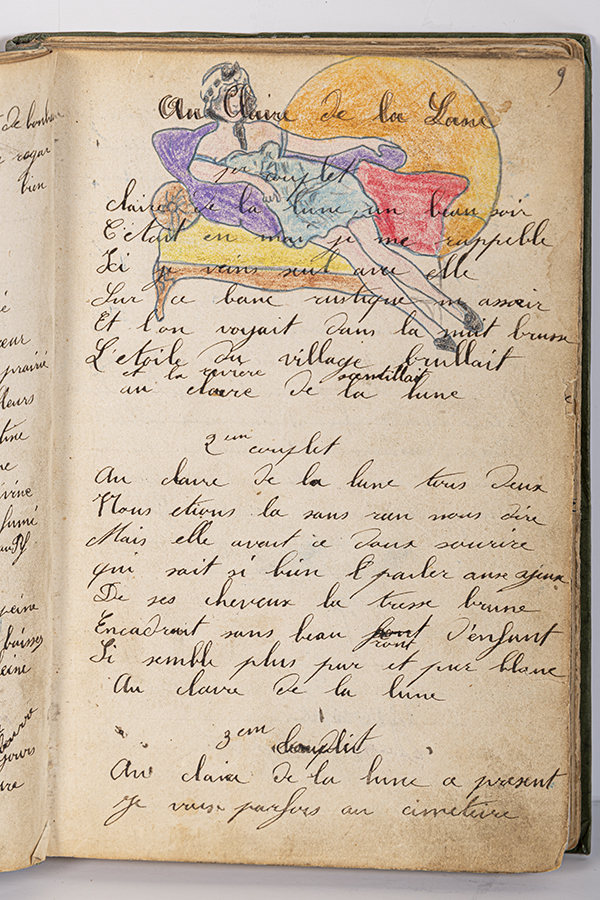 9
Au Claire de la Lune
1er couplet
au
claire de la lune un beau soir
C'etait en mai je me rappelle
Ici je veins seul avec elle
Sur ce banc rustique m assoir
Et l'on voyait dans la nuit brune
L'etoile du village brullait
et la riviere scentillait
au claire de la lune
2em couplet
Au claire de la lune tous deux
Nous etions la sans rien nous dire
Mais elle avait ce doux sourire
qui sait si bien parler aux yeux
De ses cheveux la tresse brune
Encadrait sans beau front d'enfant
front
Si semble plus pur et pur blanc
Au claire de la lune
3em Couplet
Au claire de la lune a present
Je vais parfois au cimetiere
de bonheur
bien
prairie
fleurs
peine
baisses